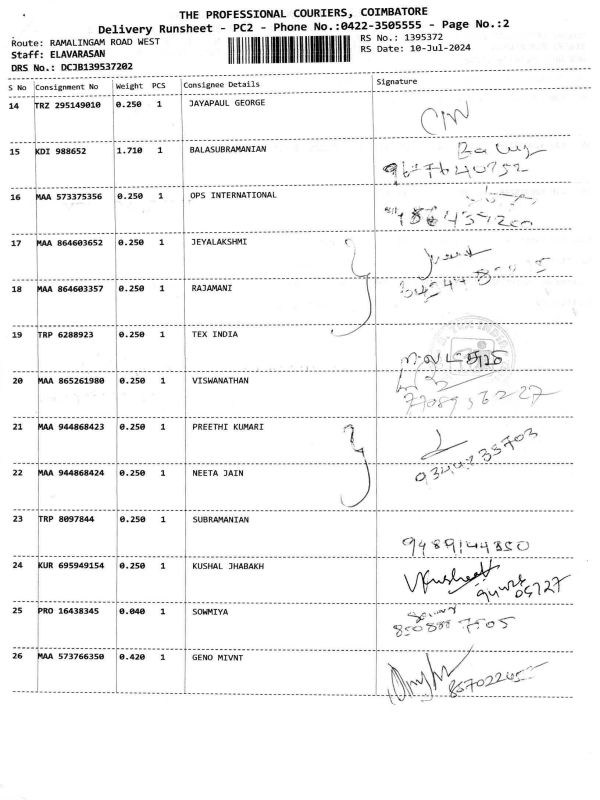 THE PROFESSIONAL COURIERS, COIMBATORE
Delivery Runsheet - PC2 - Phone No.:0422-3505555 - Page No.:2
Route: RAMALINGAM ROAD WEST
RS No.: 1395372
Staff: ELAVARASAN
RS Date: 10-Jul-2024
DRS No.: DCJB139537202
S No Consignment No Weight PCS Consignee Details Signature
14 TRZ 295149010 0.250 1 JAYAPAUL GEORGE
15 KDI 988652 1.710 1 BALASUBRAMANIAN
16 MAA 573375356 0.250 1 OPS INTERNATIONAL
17 MAA 864603652 0.250 1 JEYALAKSHMI
18 MAA 864603357 0.250 1 RAJAMANI
19 TRP 6288923 0.250 1 TEX INDIA
20 MAA 865261980 0.250 1 VISWANATHAN
21 MAA 944868423 0.250 1 PREETHI KUMARI
22 MAA 944868424 0.250 1 NEETA JAIN
23 TRP 8097844 0.250 1 SUBRAMANIAN
9489144350
24 KUR 695949154 0.250 1 KUSHAL JHABAKH
25 PRO 16438345 0.040 1 SOWMIYA
26 MAA 573766350 0.420 1 GENO MIVNT